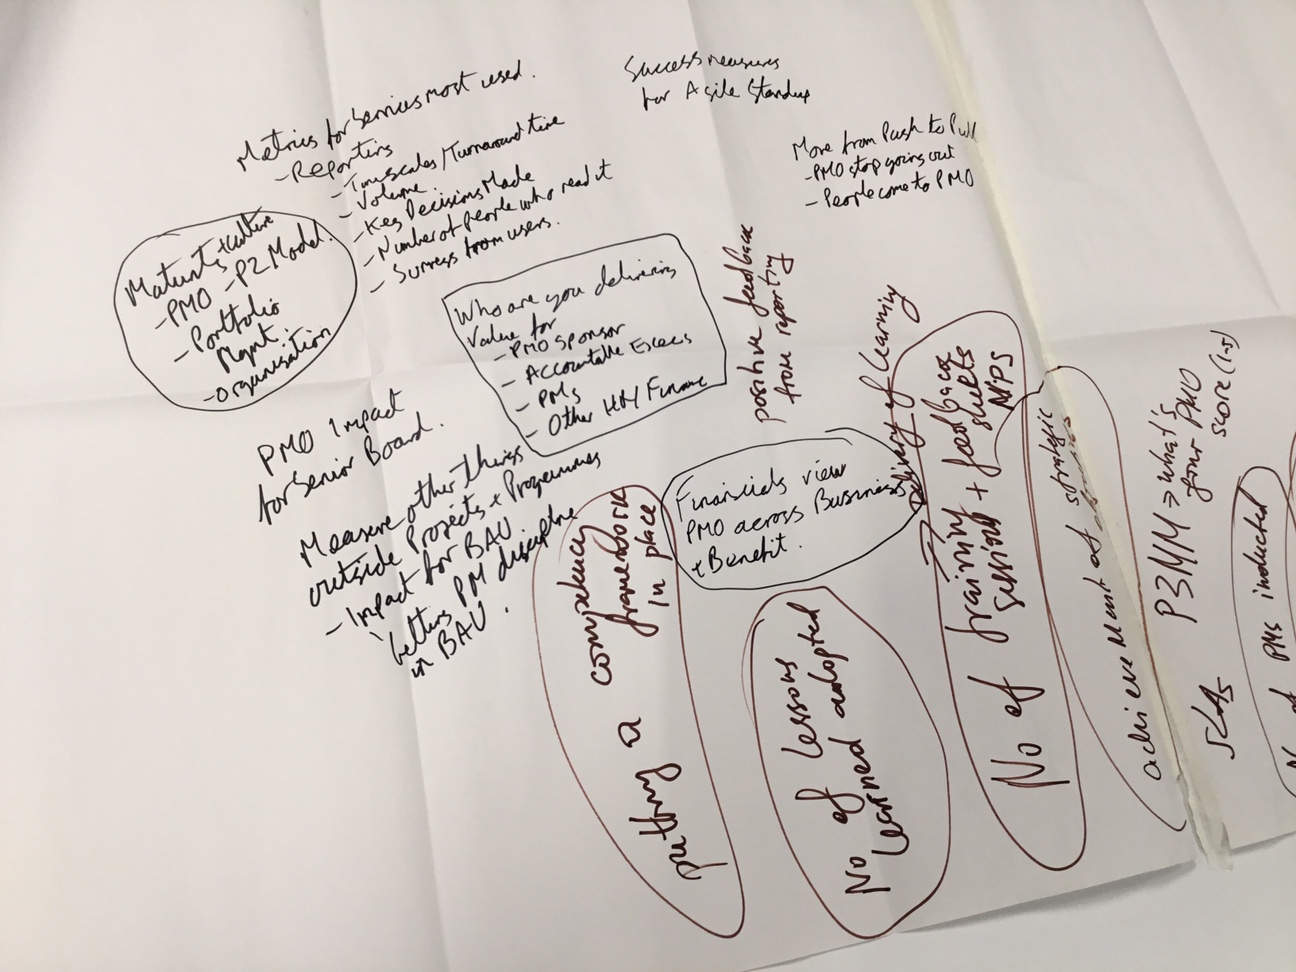 Metrics for Services most used.
- Reporting
- Timescales/Turnaround time
- Volume.
- Key Decisions Made
- Number of people who read it
- Surveys from users.
Success measures
for Agile Standup
More from Push to Pull
- PMO stop going out
- People come to PMO
Maturity + culture
- PMO - P2 Model.
- Portfolio
Mgmt.
- organisation
Who are you delivering
Value for
- PMO Sponsor
- Accountable Execs
- PMs
- Other HR/Finance
PMO Impact
for Senior Board.
Measure other things
outside Projects + Programmes
- Impact for BAU
better PM discipline
in BAU.
Financials view
PMO across Business
+ Benefit.
positive feedback
from reporting
Delivery of learning
putting a competency
framework
in place
No of lessons
learned adopted
No of training + feedback
session sheets
NPS
achievement of strategic
P3MM => what's
your PMO
score (1-5)
SLAs
of PMs inducted